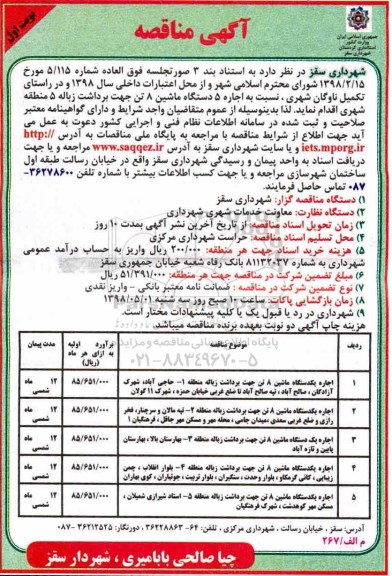 جمهوری اسلامی ایران
وزارت کشور
استانداری کردستان
شهرداری سقز
آگهی مناقصه
نوبت اول
شهرداری سقز در نظر دارد به استناد بند ۳ صورتجلسه فوق العاده شماره ۵/۱۱۵ مورخ
۱۳۹۸/۲/۱۵ شورای محترم اسلامی شهر و از محل اعتبارات داخلی سال ۱۳۹۸ و در راستای
تکمیل ناوگان شهری ، نسبت به اجاره ۵ دستگاه ماشین ۸ تن جهت برداشت زباله ۵ منطقه
شهری اقدام نماید. لذا بدینوسیله از عموم متقاضیان واجد شرایط و دارای گواهینامه معتبر
صلاحیت و ثبت شده در سامانه اطلاعات نظام فنی و اجرایی کشور دعوت به عمل می
آید جهت اطلاع از شرایط مناقصه با مراجعه به پایگاه ملی مناقصات به آدرس http://
iets.mporg.ir و یا سایت شهرداری سقز به آدرس www.saqqez.ir مراجعه و یا جهت
دریافت اسناد به واحد پیمان و رسیدگی شهرداری سقز واقع در خیابان رسالت طبقه اول
ساختمان شهرسازی مراجعه و یا جهت کسب اطلاعات بیشتر با شماره تلفن ۳۶۲۷۸۶۰۰-
۰۸۷ تماس حاصل فرمایند.
۱) دستگاه مناقصه گزار: شهرداری سقز
۲) دستگاه نظارت: معاونت خدمات شهری شهرداری
۳) زمان تحویل اسناد مناقصه: از تاریخ آخرین نشر آگهی بمدت ۱۰ روز
۴) محل تسلیم اسناد مناقصه: حراست شهرداری مرکزی
۵) هزینه خرید اسناد جهت هر منطقه: ۲۰۰/۰۰۰ ریال واریز به حساب درآمد عمومی
شهرداری به شماره ۸۱۱۳۲۰۳۷ بانک رفاه شعبه خیابان جمهوری سقز
۶) مبلغ تضمین شرکت در مناقصه جهت هر منطقه: ۵۱/۳۹۱/۰۰۰ ریال
۷) نوع تضمین شرکت در مناقصه: ضمانت نامه معتبر بانکی - واریز نقدی
۸) زمان بازگشایی پاکات: ساعت ۱۰ صبح روز سه شنبه ۱۳۹۸/۰۵/۰۱
۹) شهرداری در رد یا قبول یک یا کلیه پیشنهادات مختار است.
هزینه چاپ آگهی دو نوبت بعهده برنده مناقصه میباشد.
۰۲۱-۸۸۳۴۹۶۷۰-۵
ردیف موضوع مناقصه برآورد اولیه به ازای هر ماه (ریال) مدت پیمان
۱ اجاره یکدستگاه ماشین ۸ تن جهت برداشت زباله منطقه ۱- حاجی آباد، شهرک ۸۵/۶۵۱/۰۰۰ ۱۲ ماه
آزادگان ، صالح آباد ، تپه صالح آباد تا ضلع غربی خیابان حمزه ، شهرک ۱۱ کولان شمسی
۲ اجاره یکدستگاه ماشین ۸ تن جهت برداشت زباله منطقه ۲- تپه مالان و سرچنار، فخر ۸۵/۶۵۱/۰۰۰ ۱۲ ماه
رازی و ضلع غربی سعدی ،میدان جامی ، محله مهر و مسکن مهر حافل ، فرهنگیان ۱ شمسی
۳ اجاره یک دستگاه ماشین ۸ تن جهت برداشت زباله منطقه ۳- بهارستان بالا، بهارستان ۸۵/۶۵۱/۰۰۰ ۱۲ ماه
پایین و تازه آباد شمسی
۴ اجاره یکدستگاه ماشین ۸ تن جهت برداشت زباله منطقه ۴- بلوار انقلاب ، چمن ۸۵/۶۵۱/۰۰۰ ۱۲ ماه
زیبایی، کانی گرمکاو ، بلوار وحدت، سنگبران ، بلوار تربیت ، جوتیاران ، کوی بهاران شمسی
۵ اجاره یکدستگاه ماشین ۸ تن جهت برداشت زباله منطقه ۵- استاد شیرازی شمیلان ، ۸۵/۶۵۱/۰۰۰ ۱۲ ماه
مسکن مهر کوهدشت ، شهرک فرهنگیان شمسی
آدرس: سقز ، خیابان رسالت ، شهرداری مرکزی ، تلفن: ۶۴-۳۶۲۲۸۸۶۳ ، دورنگار: ۳۶۲۱۲۵۲۵-۰۸۷
م الف/۲۶۷
چیا صالحی بابامیری ، شهردار سقز